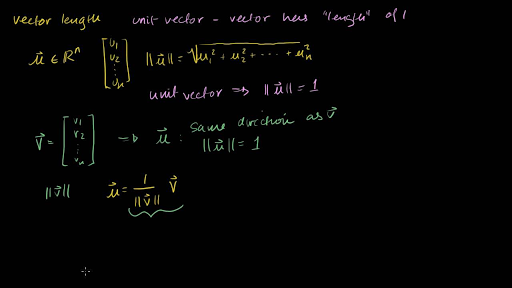 vector length    unit vector - vector has "length" of 1
u⃗ ∈ ℝⁿ  [u₁ u₂ ⋮ uₙ]  ||u⃗|| = √(u₁² + u₂² + ··· + uₙ²)
unit vector ⇒ ||u⃗|| = 1
v⃗ = [v₁ v₂ ⋮ vₙ] → u⃗ : same direction as v⃗
||u⃗|| = 1
||v⃗||    u⃗ = 1/||v⃗|| v⃗